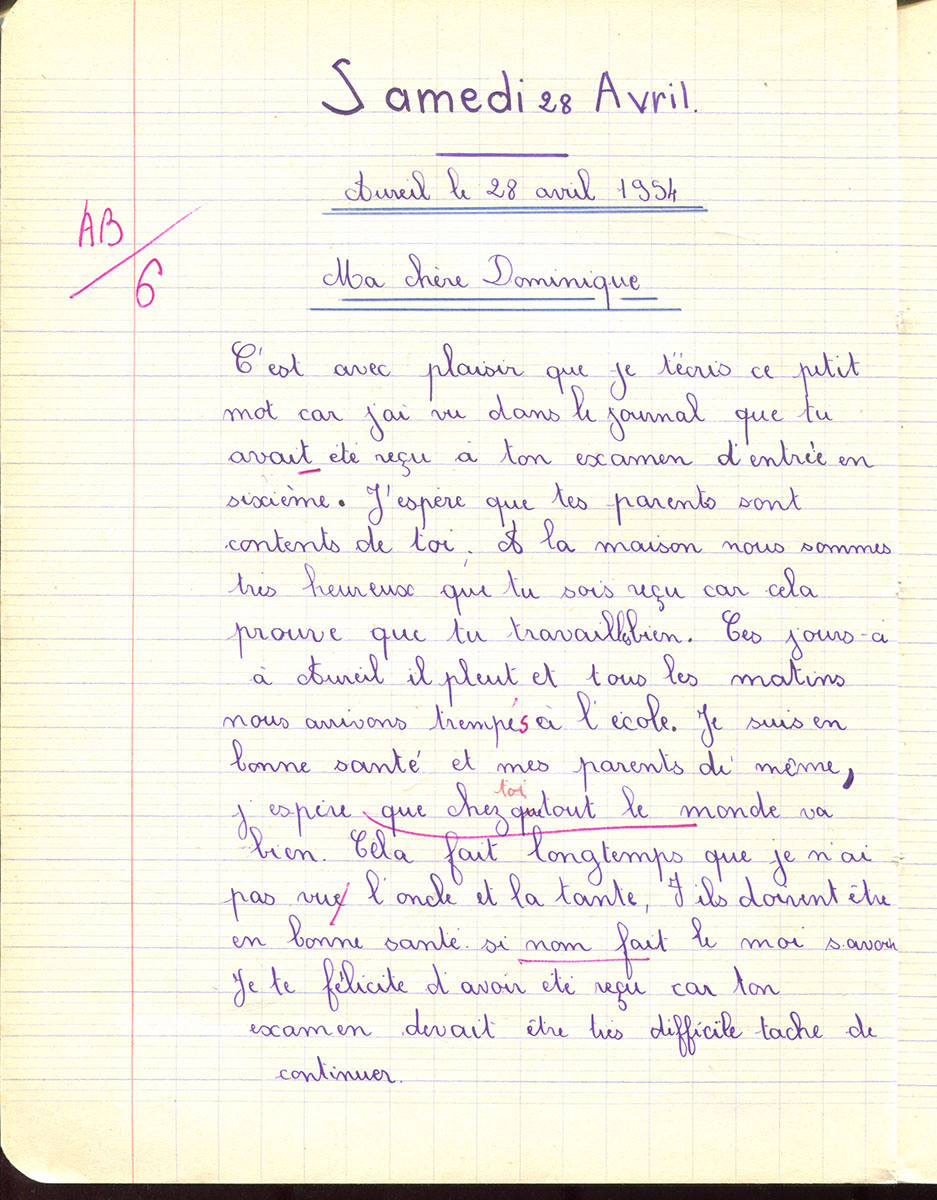 Samedi 28 Avril.
Aureil le 28 avril 1954
AB
6
Ma chère Dominique
C'est avec plaisir que je t'écris ce petit
mot car j'ai vu dans le journal que tu
avait été reçu à ton examen d'entrée en
sixième. J'espère que tes parents sont
contents de toi. A la maison nous sommes
très heureux que tu sois reçu car cela
prouve que tu bien. Ces jours-
à Aureil il pleut et tous les matins
nous arrivons trempés à l'école. Je suis en
bonne santé et mes parents de même,
toi
j'espère que chez que tout le monde va
bien. Cela fait longtemps que je n'ai
pas vue l'oncle et la tante, ils doivent être
en bonne santé si nom fait le moi savoir
Je te félicite d'avoir été reçu car ton
examen devait être très difficile tache de
continuer.